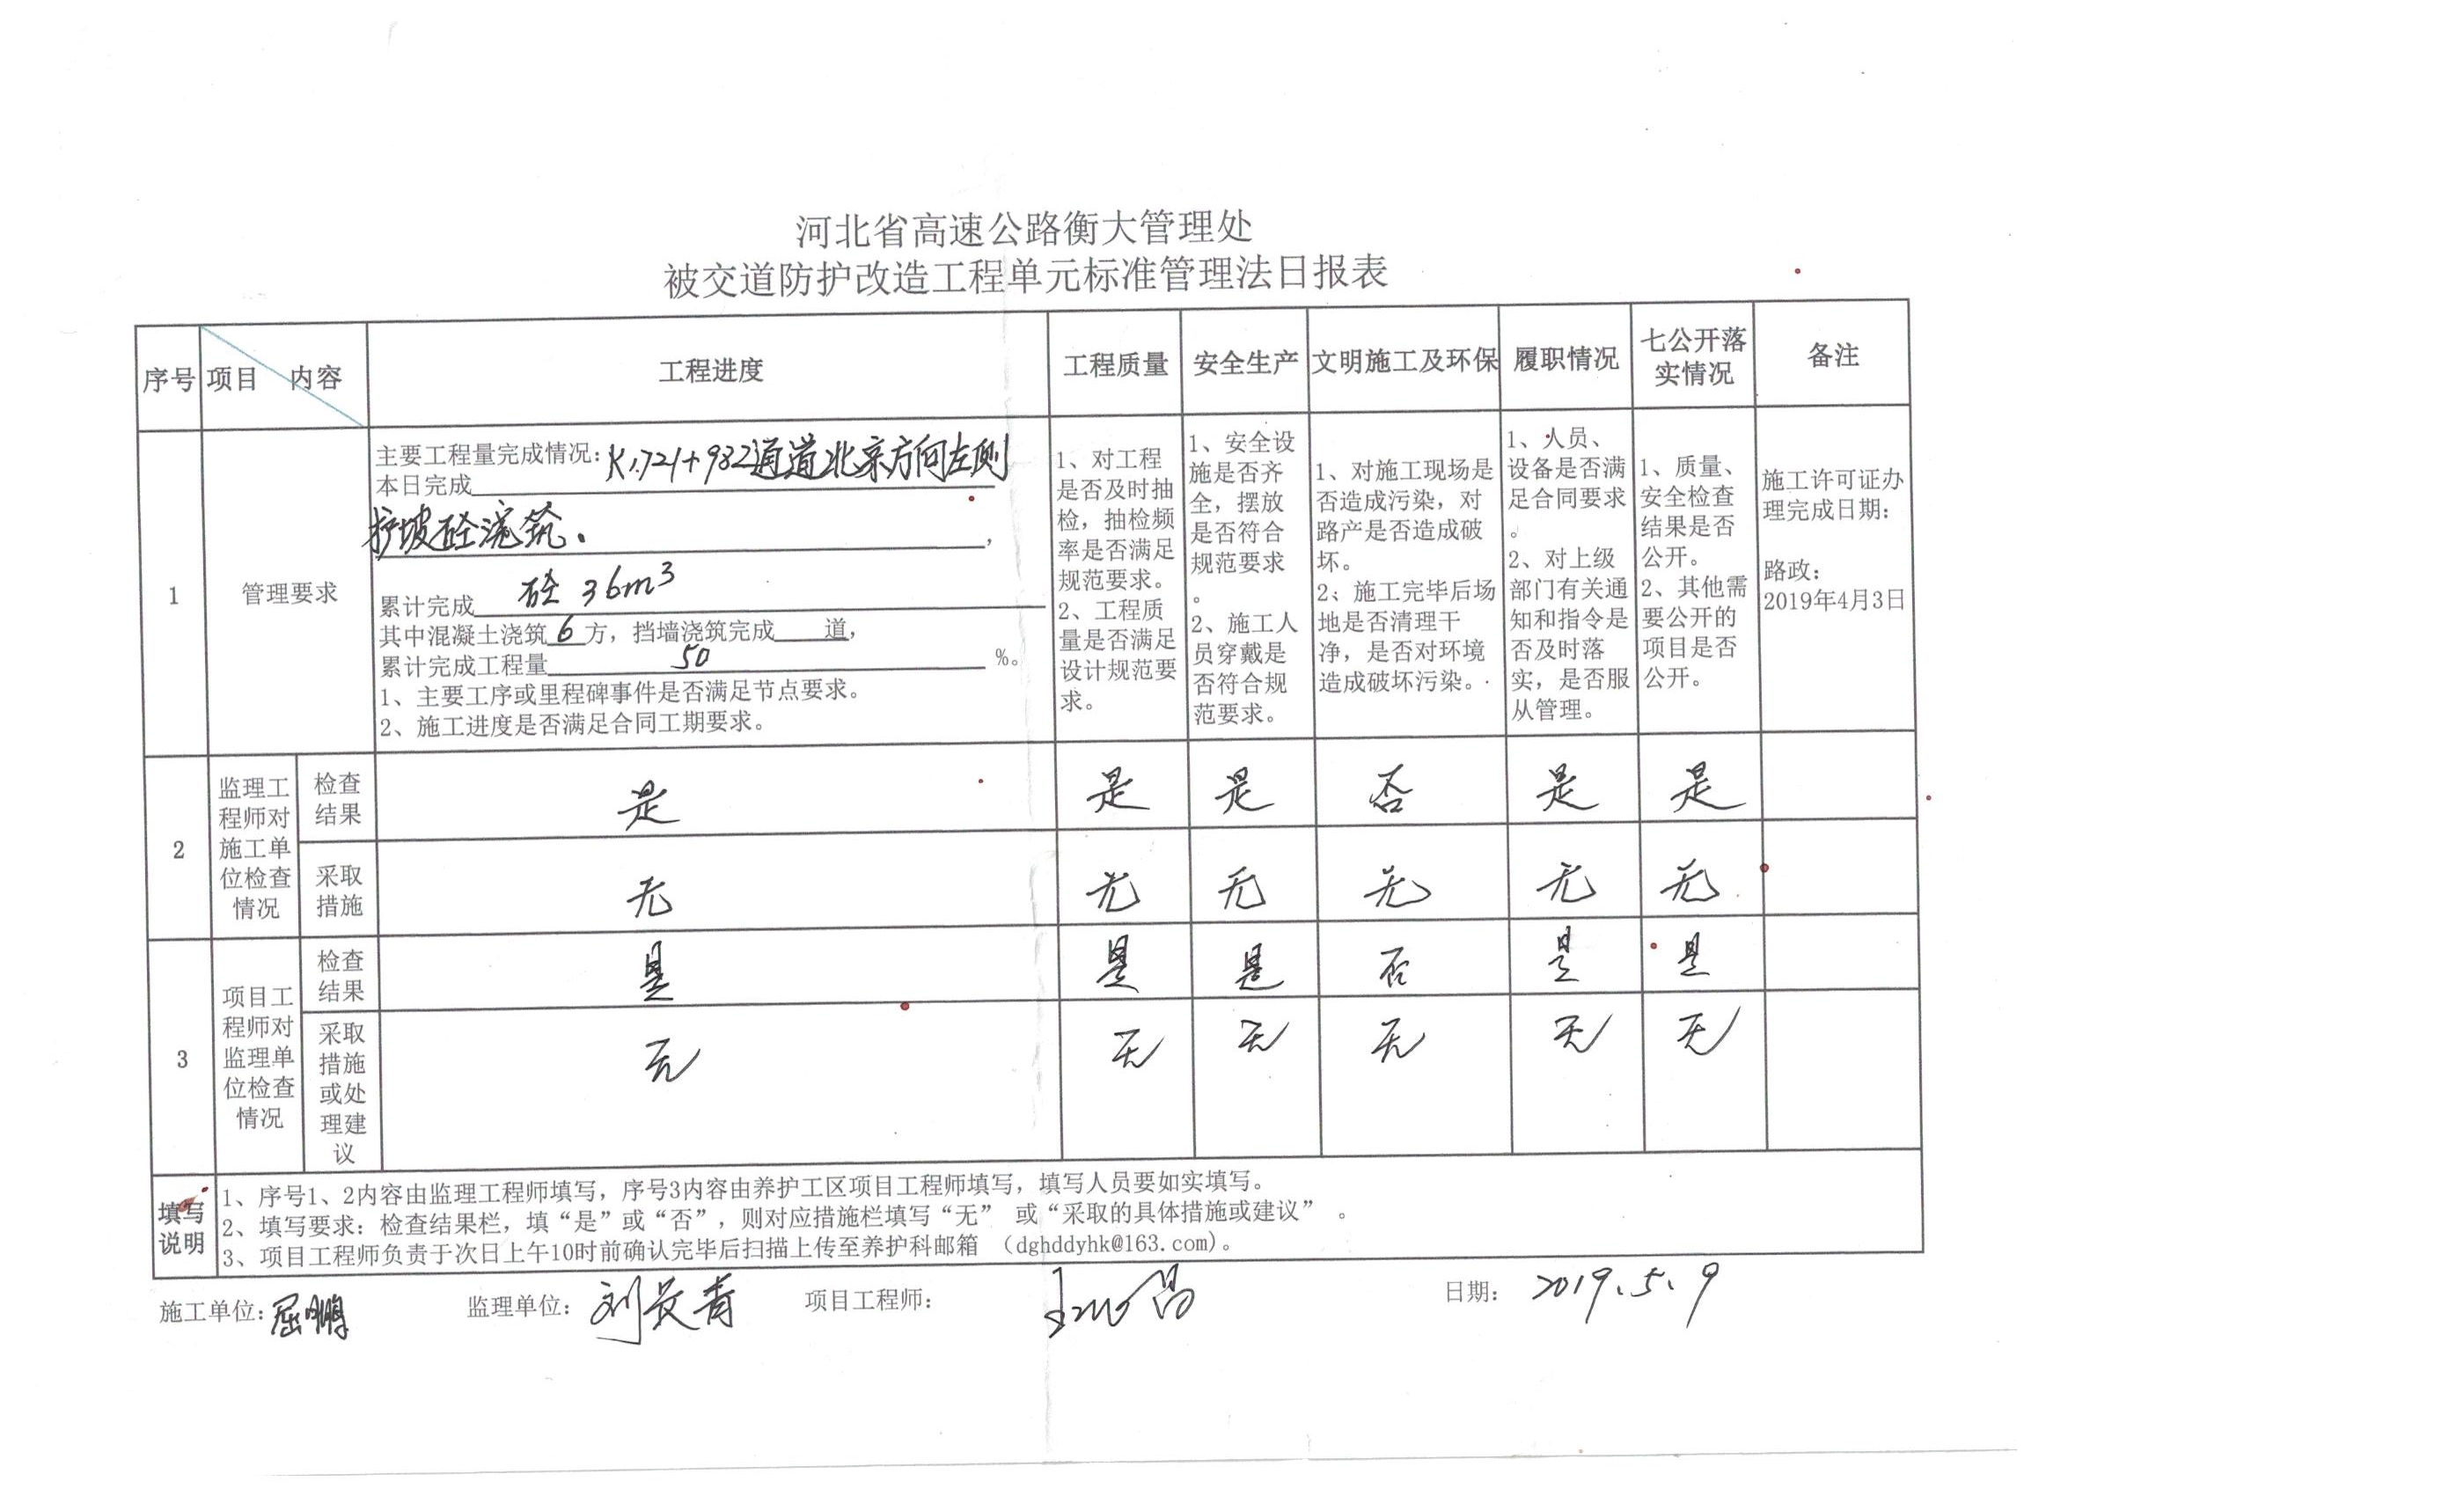 河北省高速公路衡大管理处
被交道防护改造工程单元标准管理法日报表
序号 项目 内容 工程进度 工程质量 安全生产 文明施工及环保 履职情况 七公开落
实情况 备注
1
管理要求
主要工程量完成情况：K1721+982通道北京方向左侧
本日完成
护坡砼浇筑.，
累计完成 砼 36m³
其中混凝土浇筑6方，挡墙浇筑完成 道，
累计完成工程量 50 %。
1、主要工序或里程碑事件是否满足节点要求。
2、施工进度是否满足合同工期要求。
1、对工程
是否及时抽
检，抽检频
率是否满足
规范要求。
2、工程质
量是否满足
设计规范要
求。
1、安全设
施是否齐
全，摆放
是否符合
规范要求
。
2、施工人
员穿戴是
否符合规
范要求。
1、对施工现场是
否造成污染，对
路产是否造成破
坏。
2：施工完毕后场
地是否清理干
净，是否对环境
造成破坏污染。
1、人员、
设备是否满
足合同要求
。
2、对上级
部门有关通
知和指令是
否及时落
实，是否服
从管理。
1、质量、
安全检查
结果是否
公开。
2、其他需
要公开的
项目是否
公开。
施工许可证办
理完成日期：
路政：
2019年4月3日
2
监理工
程师对
施工单
位检查
情况
检查
结果
是 是 是 否 是 是
采取
措施
无 无 无 无 无 无
3
项目工
程师对
监理单
位检查
情况
检查
结果
是 是 是 否 是 是
采取
措施
或处
理建
议
无 无 无 无 无 无
填写
说明
1、序号1、2内容由监理工程师填写，序号3内容由养护工区项目工程师填写，填写人员要如实填写。
2、填写要求：检查结果栏，填“是”或“否”，则对应措施栏填写“无” 或“采取的具体措施或建议” 。
3、项目工程师负责于次日上午10时前确认完毕后扫描上传至养护科邮箱 （dghddyhk@163.com)。
施工单位：屈鹏 监理单位：刘长青 项目工程师： 日期：2019.5.9